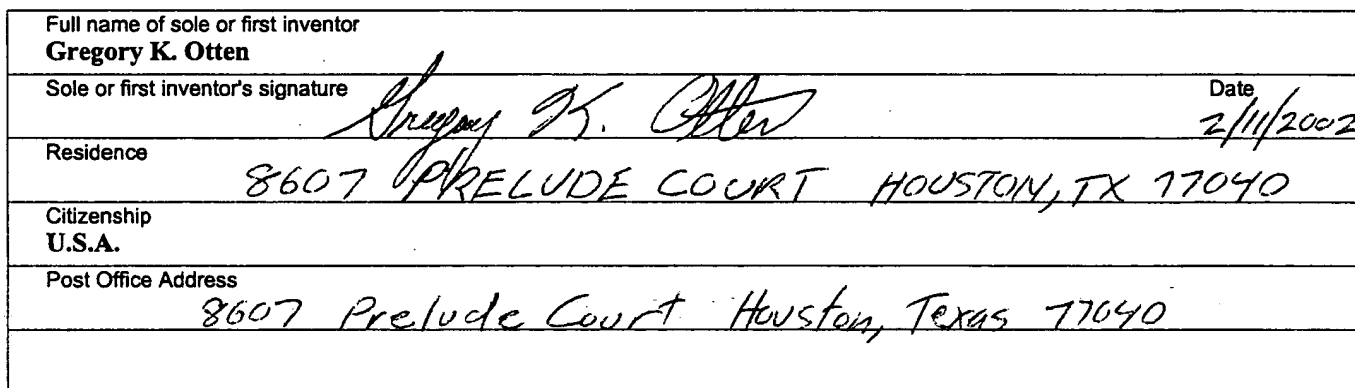 Full name of sole or first inventor
Gregory K. Otten
Sole or first inventor's signature Gregory K. Otten Date
2/11/2002
Residence
8607 PRELUDE COURT HOUSTON, TX 77040
Citizenship
U.S.A.
Post Office Address
8607 Prelude Court Houston, Texas 77040